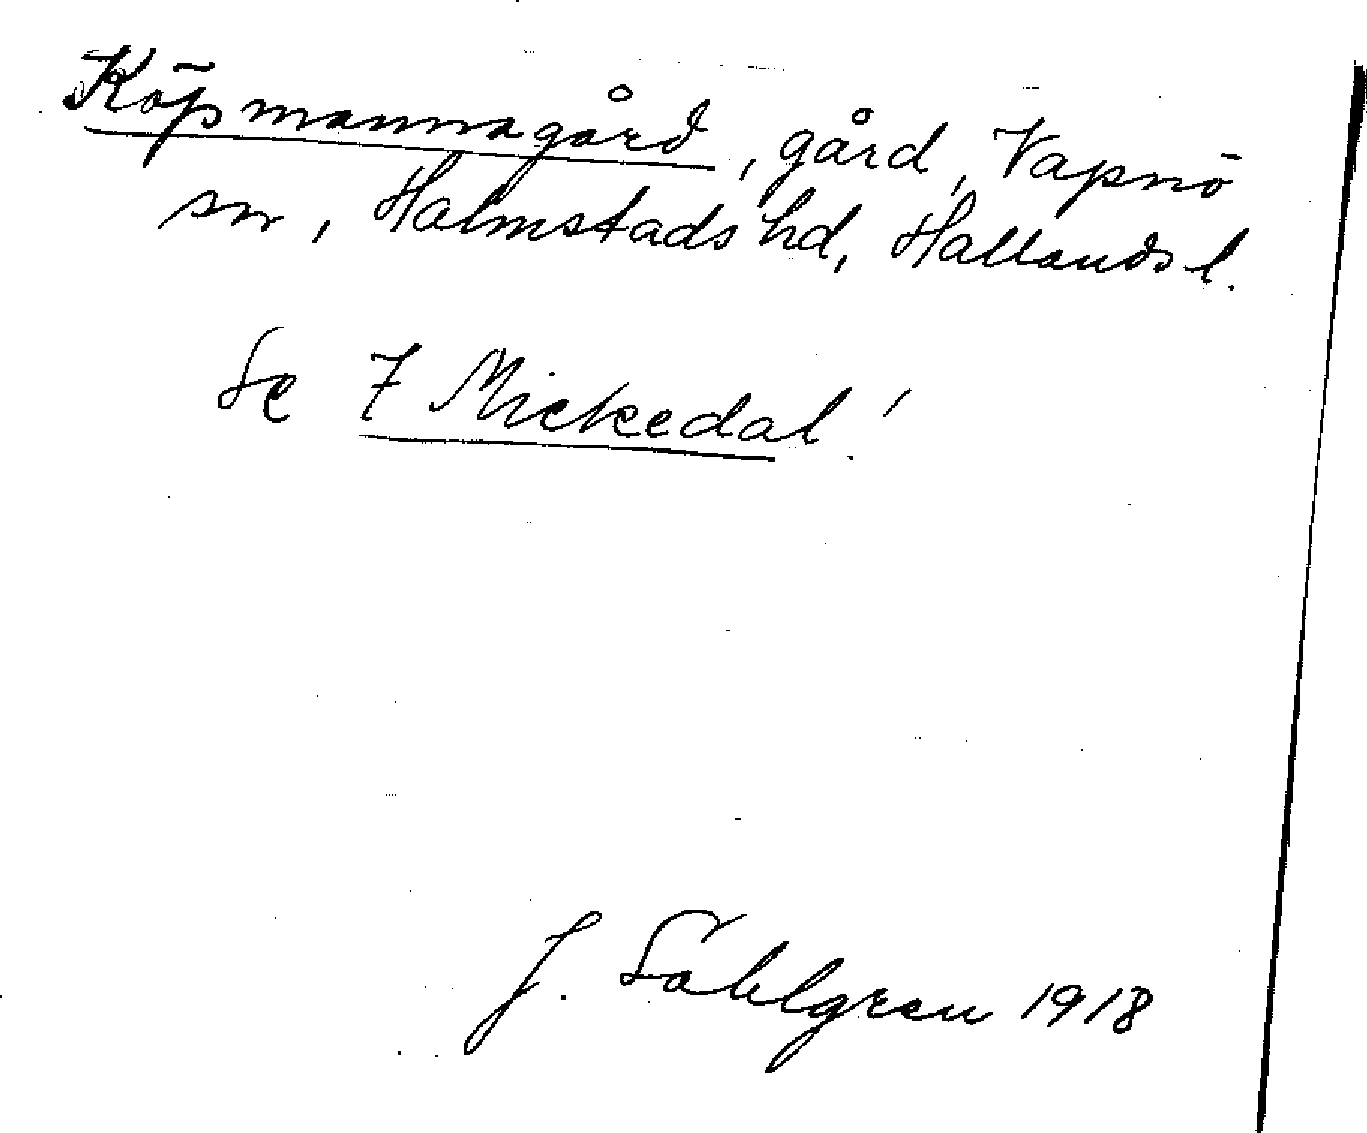 Köpmannagård, gård, Vapnö
sn, Halmstads hd, Hallands l.
Se 7 Mickedal!
J. Sahlgren 1918